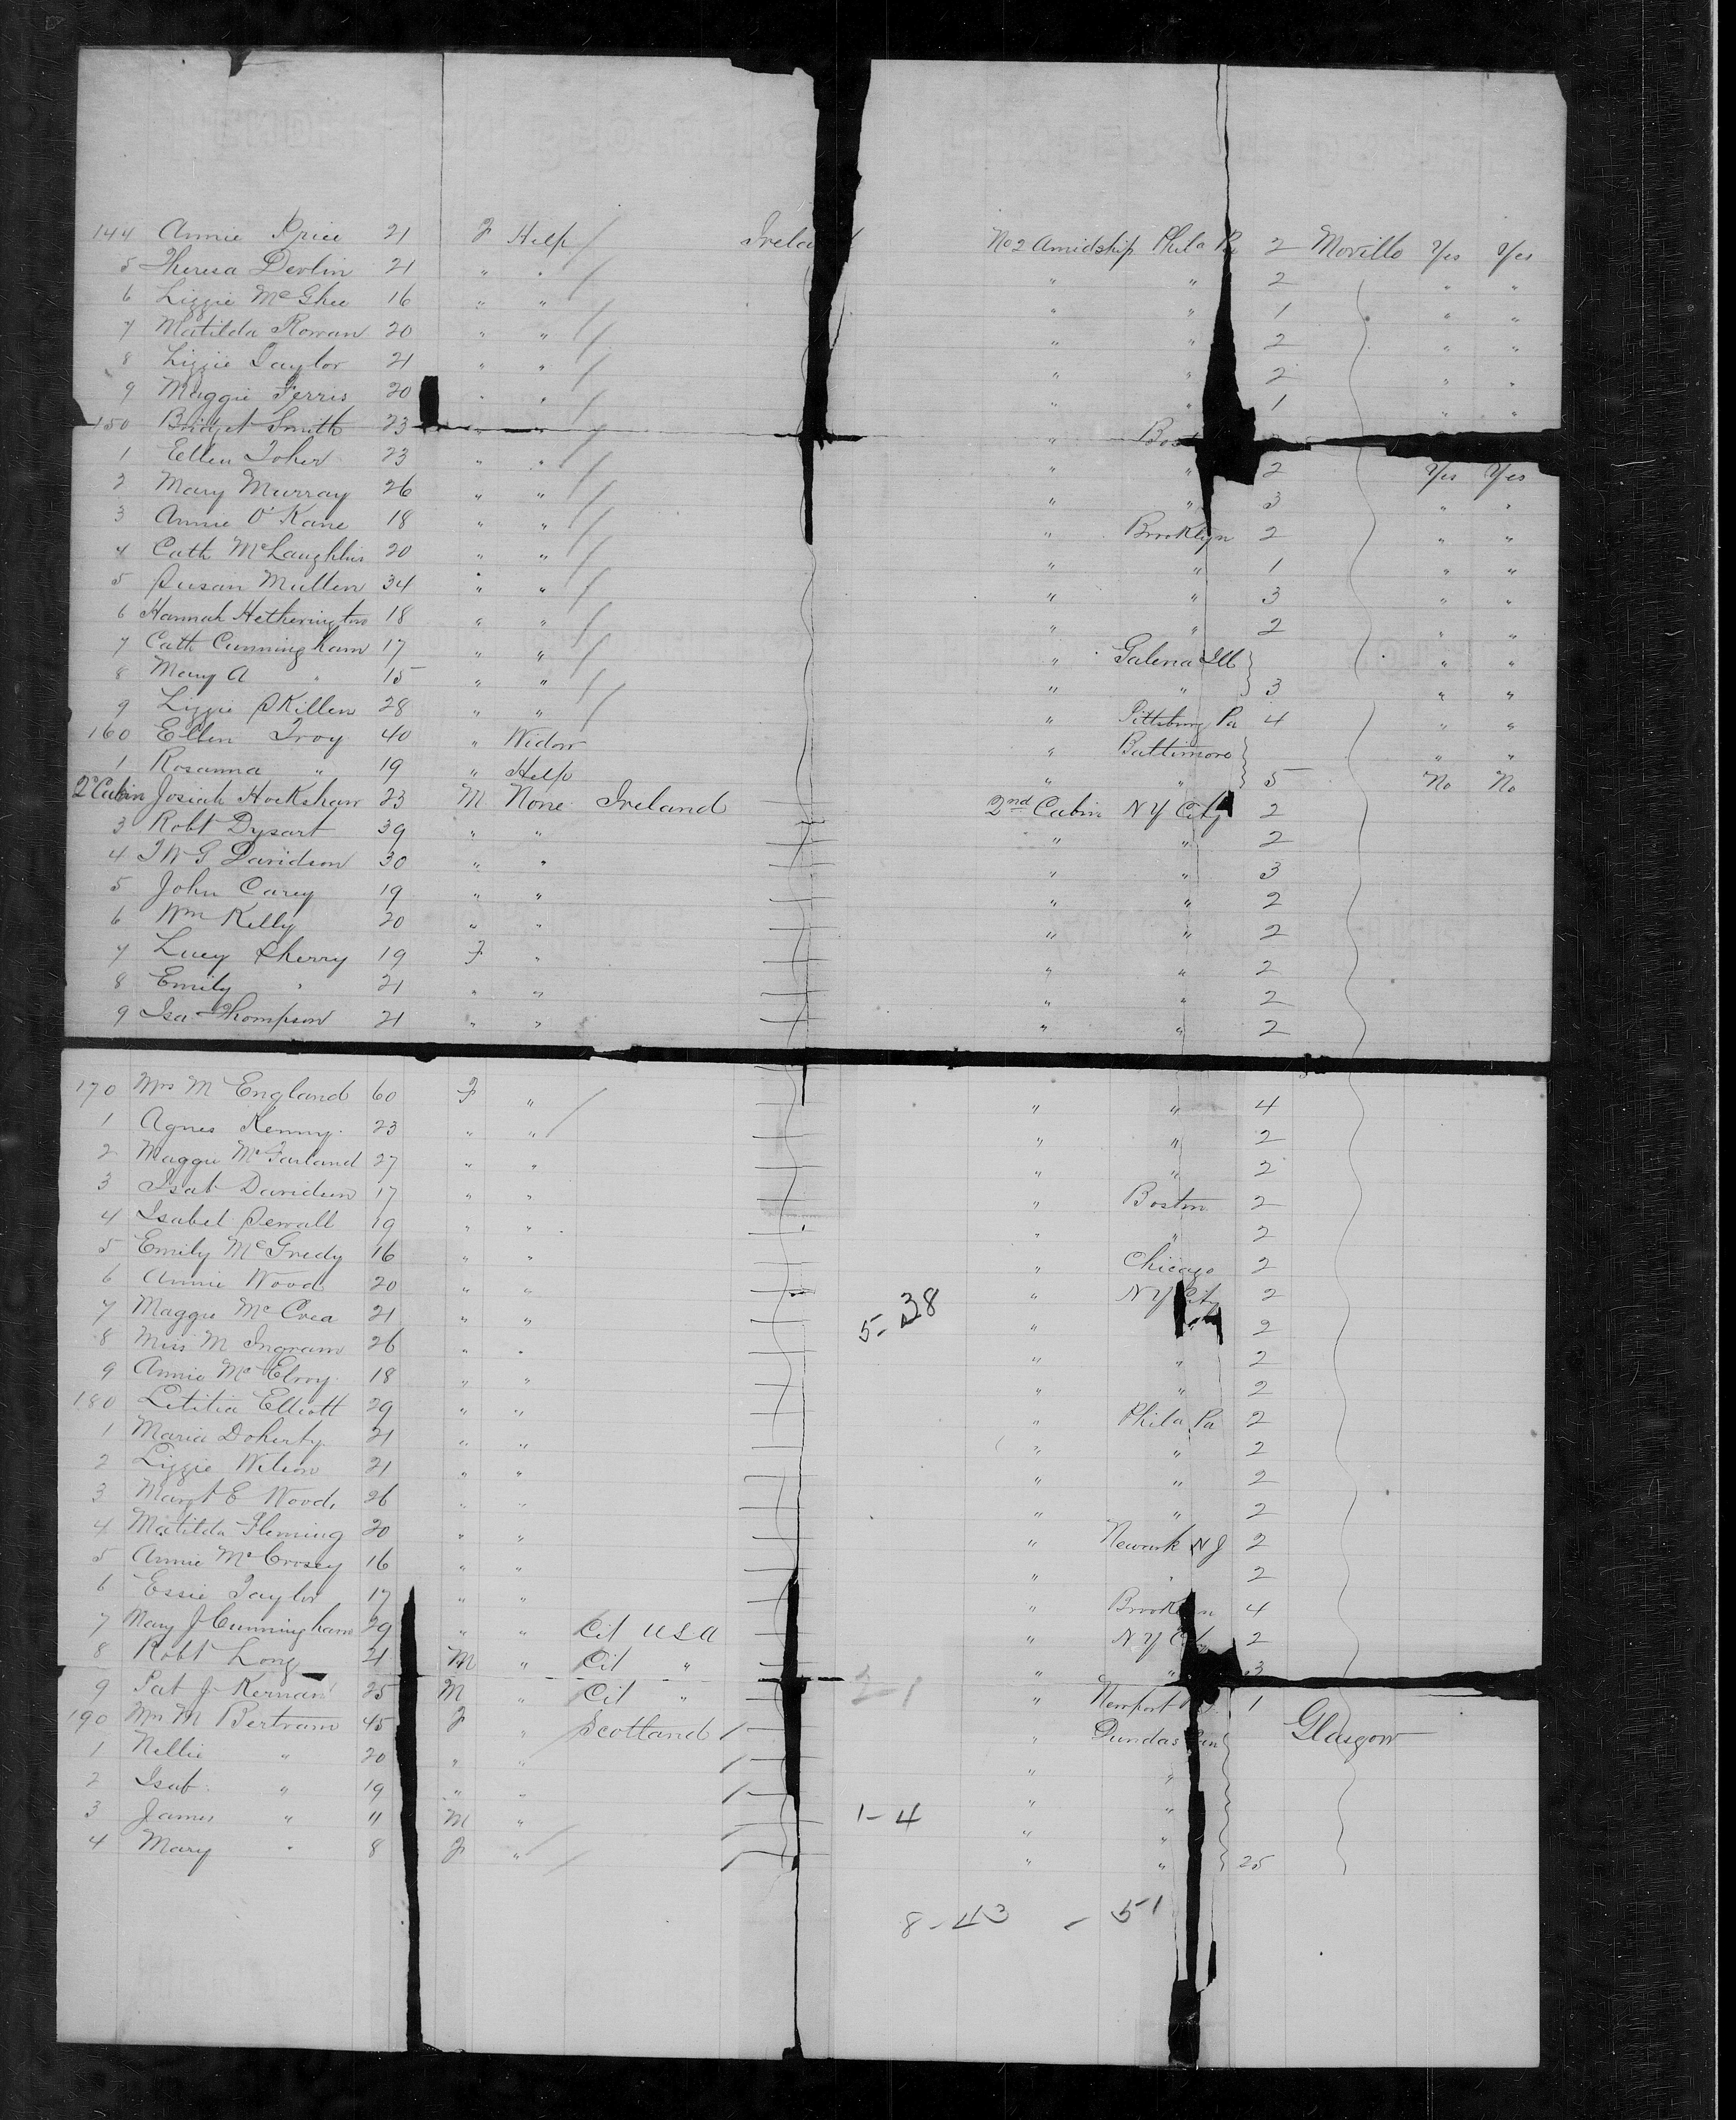 144 Annie Price 21 F Help Irela No 2 Amidship Phila Pa 2 Moville Yes Yes
5 Theresa Devlin 21 " " " " 2 " "
6 Lizzie McGhee 16 " " " " 1 " "
7 Matilda Rowan 20 " " " " 2 " "
8 Lizzie Taylor 21 " " " " 2 " "
9 Maggie Ferris 20 " " " " 1 " "
150 Bridget Smith 23 " " " Bos
1 Ellen Toher 23 " " " " 2 Yes Yes
2 Mary Murray 26 " " " " 3 " "
3 Annie O'Kane 18 " " " Brooklyn 2 " "
4 Cath McLaughlin 20 " " " " 1 " "
5 Susan Mullen 34 " " " " 3 " "
6 Hannah Hetherington 18 " " " " 2 " "
7 Cath Cunningham 17 " " " Galena Ill " "
8 Mary A " 15 " " " " 3 " "
9 Lizzie Skillen 28 " " " Pittsburg Pa 4 " "
160 Ellen Troy 40 " Widow " Baltimore " "
1 Rosanna " 19 " Help " " 5 No No
2 Cabin Josiah Hockshaw 23 M None Ireland 2nd Cabin N Y City 2
3 Robt Dysart 39 " " " " 2
4 J W G Davidson 30 " " " " 3
5 John Carey 19 " " " " 2
6 Wm Kelly 20 " " " " 2
7 Lucy Sherry 19 F " " " 2
8 Emily " 21 " " " " 2
9 Isa Thompson 21 " " " " 2
170 Mrs M England 60 F " " " 4
1 Agnes Kenny 23 " " " " 2
2 Maggie McFarland 27 " " " " 2
3 Isab Davidson 17 " " " Boston 2
4 Isabel Sewall 19 " " " " 2
5 Emily McGredy 16 " " " Chicago 2
6 Annie Wood 20 " " " N Y City 2
7 Maggie McCrea 21 " " 5-38 " 2
8 Miss M Ingram 26 " " " " 2
9 Annie McElroy 18 " " " " 2
180 Letitia Elliott 29 " " " Phila Pa 2
1 Maria Doherty 21 " " " " 2
2 Lizzie Wilson 21 " " " " 2
3 Margt E Woods 26 " " " " 2
4 Matilda Fleming 20 " " " Newark N J 2
5 Annie McCrosey 16 " " " " 2
6 Essie Taylor 17 " " " Brooklyn 4
7 Mary J Cunningham 29 " " Cit USA " N Y City 2
8 Robt Long 21 M " Cit " " " 3
9 Pat J Kernan 25 M " Cit " 2-1 " Newport 1
190 Mrs M Bertram 45 F " Scotland " Dundas Can Glasgow
1 Nellie " 20 " " " "
2 Isab " 19 " " " "
3 James " 11 M " 1-4 " "
4 Mary " 8 F " " " 25
8-43 - 51